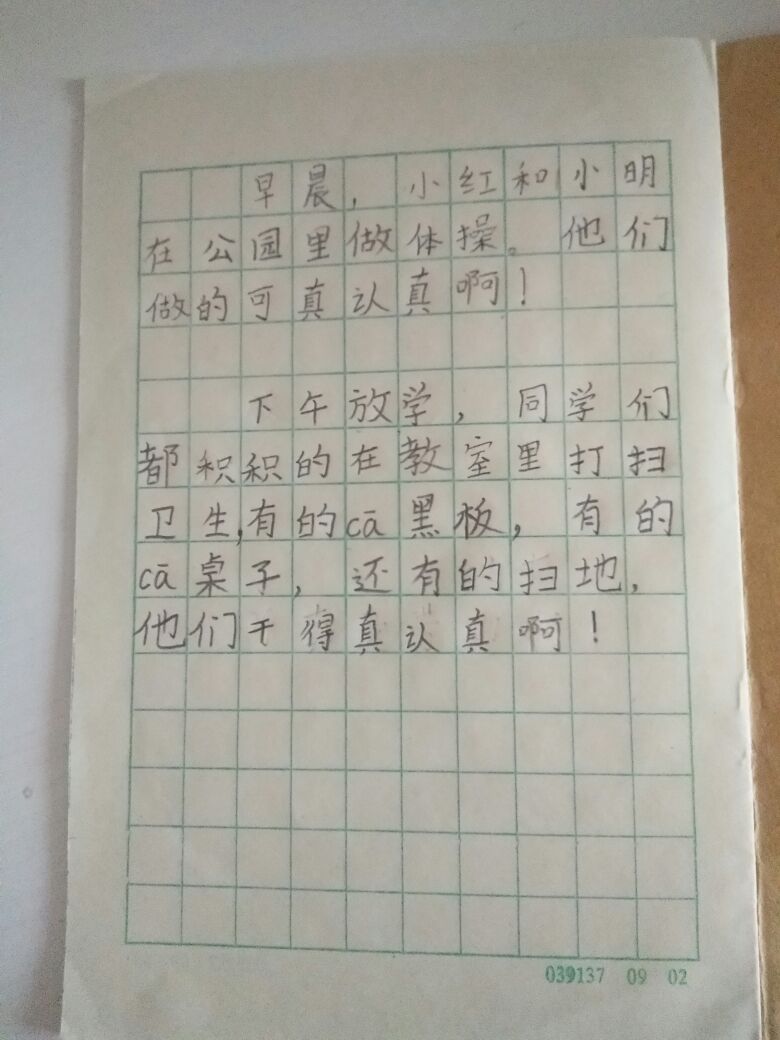 早晨，小红和小明
在公园里做体操。他们
做的可真认真啊！
下午放学，同学们
都积积的在教室里打扫
卫生,有的cā黑板，有的
cā桌子，还有的扫地，
他们干得真认真啊！
039137 09 02